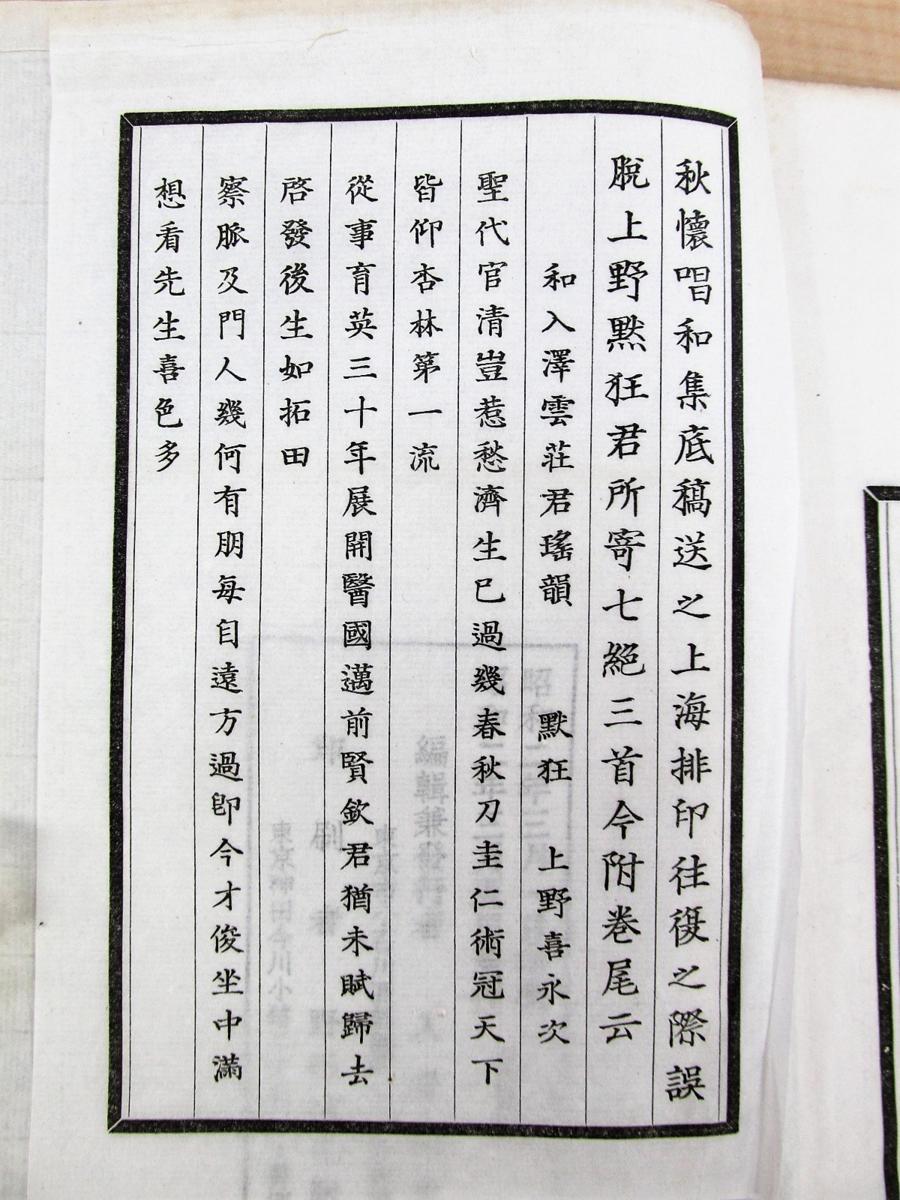 秋懷唱和集底稿送之上海排印往復之際誤
脫上野默狂君所寄七絕三首今附卷尾云
和入澤雲莊君瑤韻 默狂 上野喜永次
聖代官清豈惹愁濟生已過幾春秋刀圭仁術冠天下
皆仰杏林第一流
從事育英三十年展開醫國邁前賢欽君猶未賦歸去
啓發後生如拓田
察脈及門人幾何有朋每自遠方過卽今才俊坐中滿
想看先生喜色多